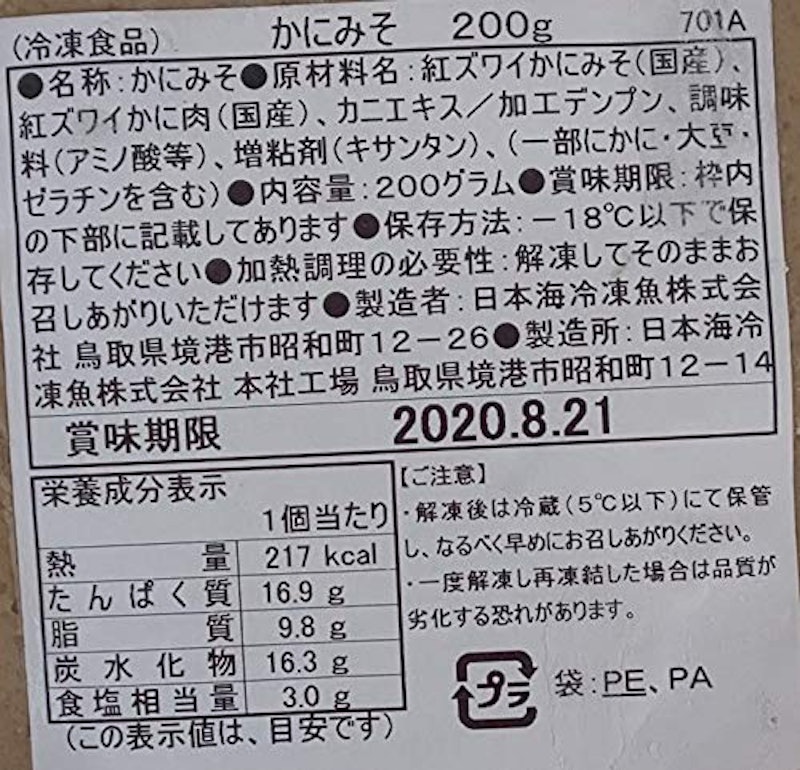 (冷凍食品) かにみそ 200g 701A
●名称:かにみそ●原材料名:紅ズワイかにみそ(国産)、
紅ズワイかに肉(国産)、カニエキス/加工デンプン、調味
料(アミノ酸等)、増粘剤(キサンタン)、(一部にかに・大豆・
ゼラチンを含む)●内容量:200グラム●賞味期限:枠内
の下部に記載してあります●保存方法:-18℃以下で保
存してください●加熱調理の必要性:解凍してそのままお
召しあがりいただけます●製造者:日本海冷凍魚株式会
社 鳥取県境港市昭和町12-26●製造所:日本海冷
凍魚株式会社 本社工場 鳥取県境港市昭和町12-14
賞味期限 2020.8.21
栄養成分表示
1個当たり
熱量 217 kcal
たんぱく質 16.9 g
脂質 9.8 g
炭水化物 16.3 g
食塩相当量 3.0 g
(この表示値は、目安です)
【ご注意】
・解凍後は冷蔵(5℃以下)にて保管
し、なるべく早めにお召しあがりください。
・一度解凍し再凍結した場合は品質が
劣化する恐れがあります。
プラ 袋:PE、PA